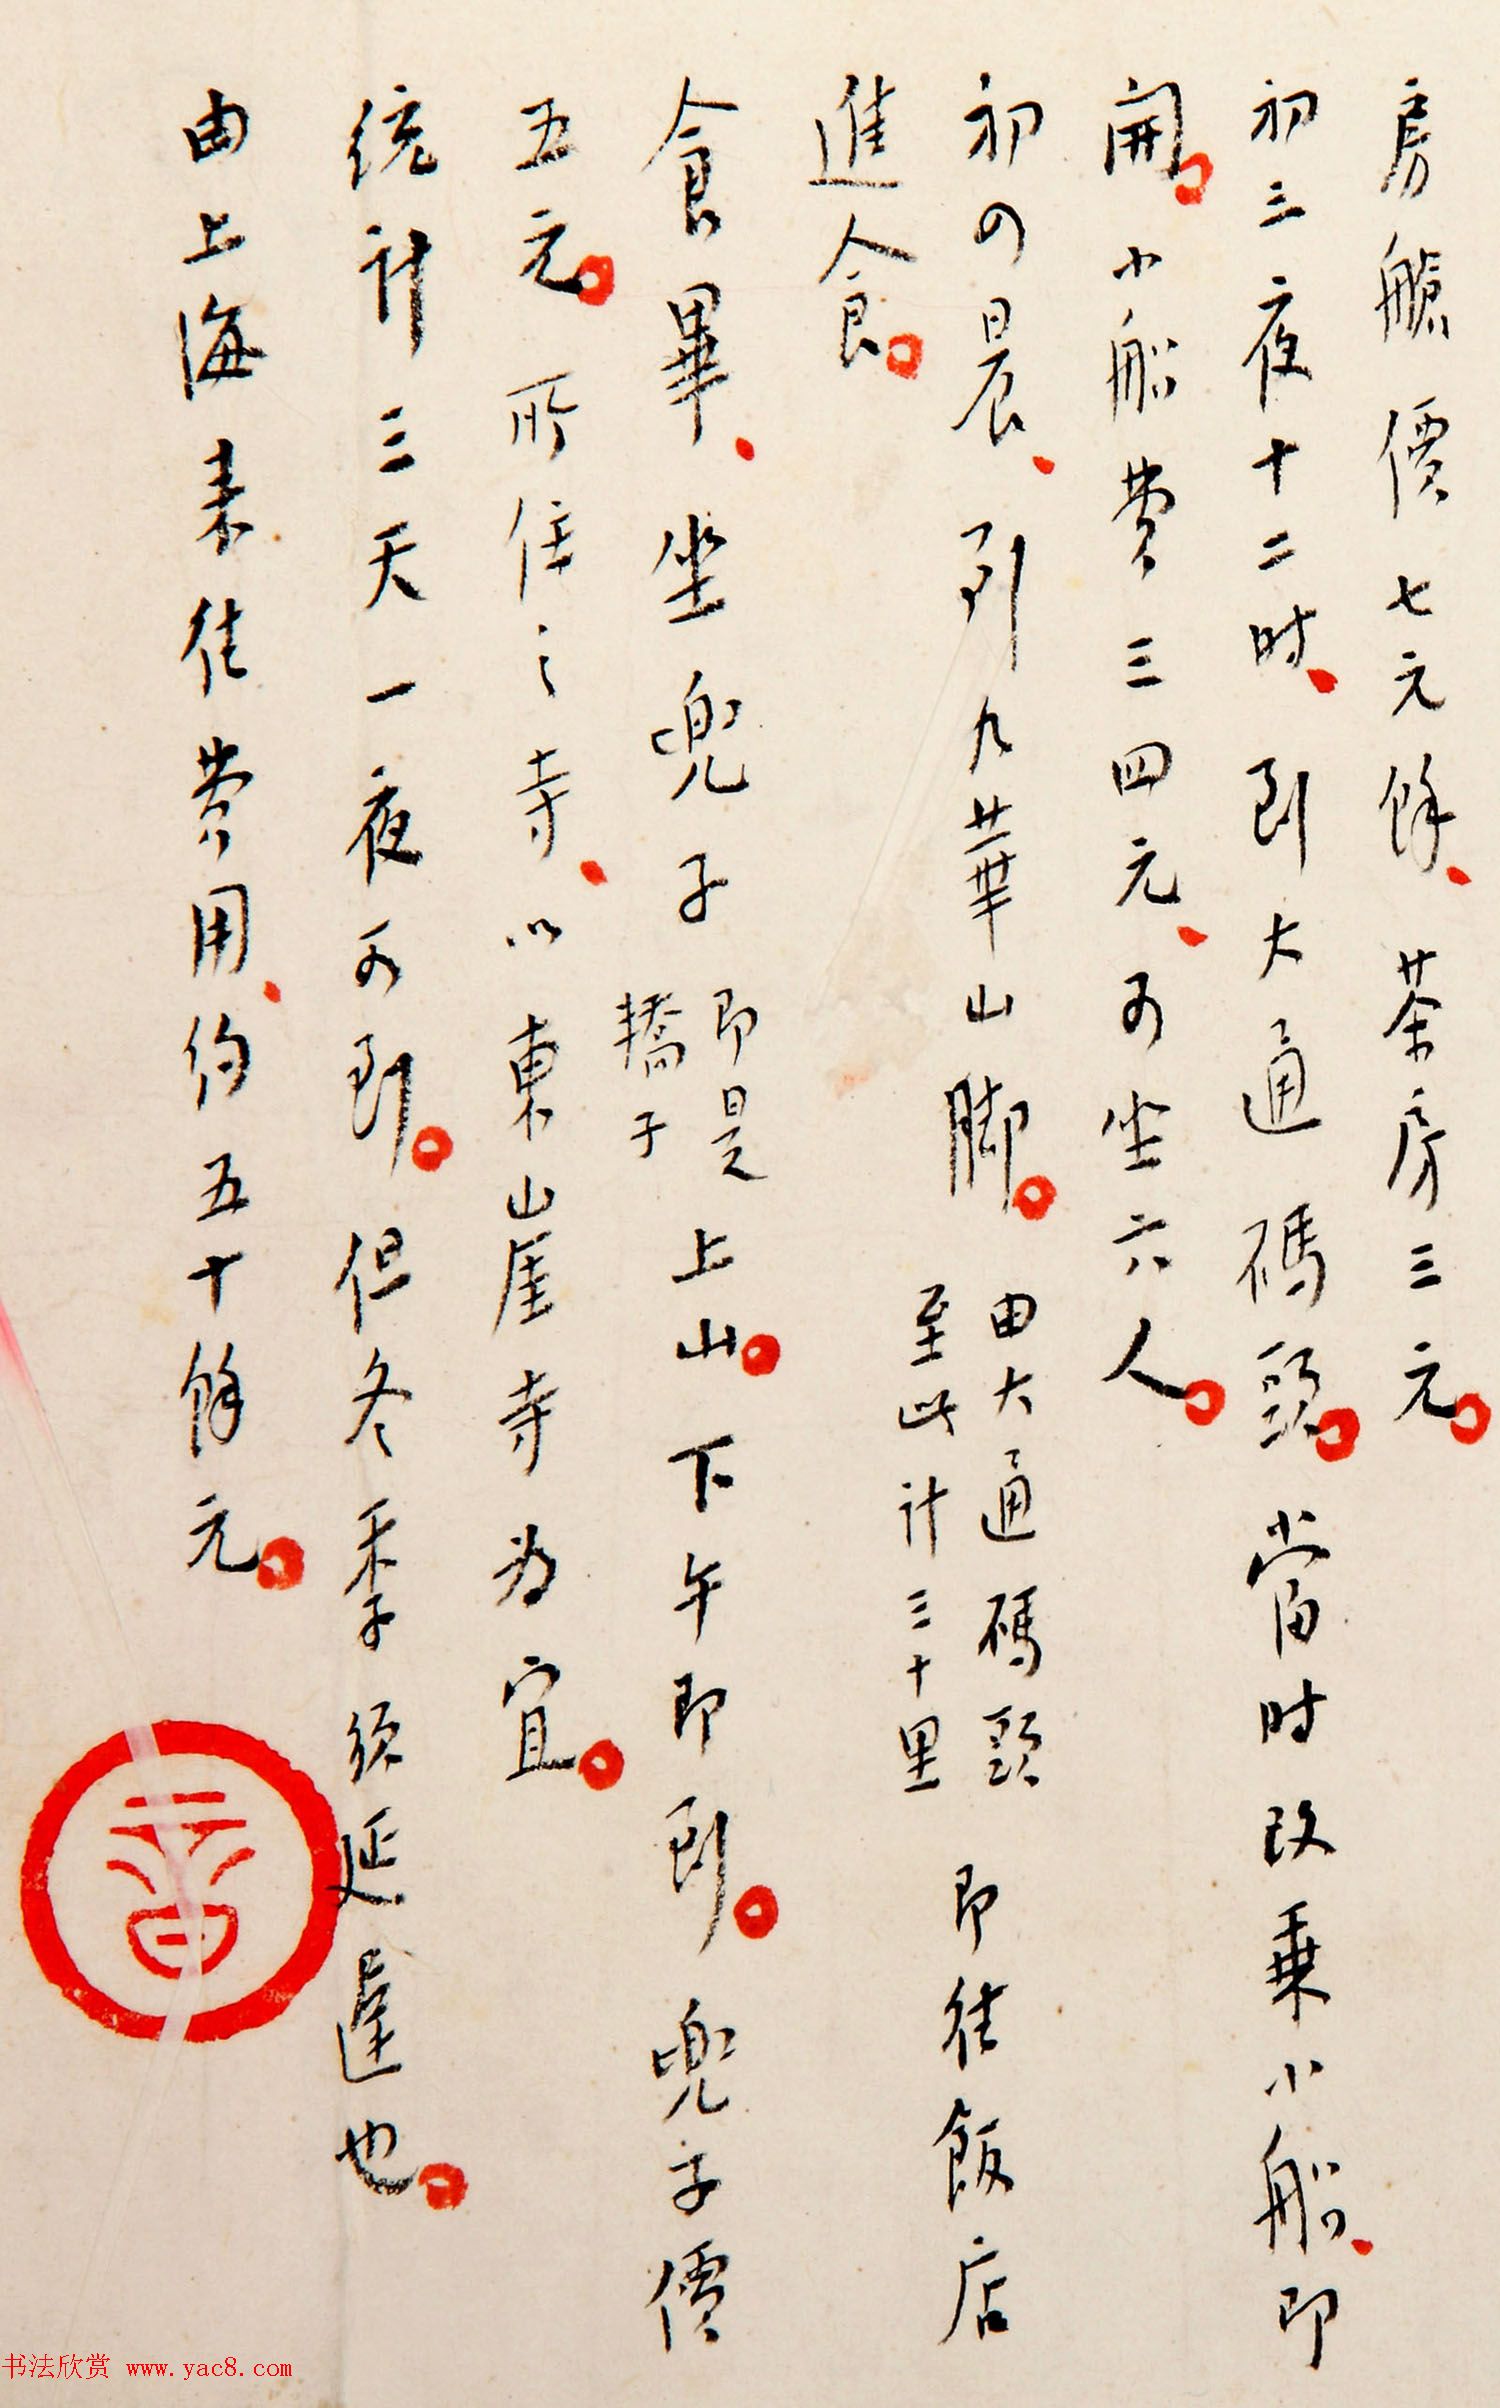 房艙價七元餘、茶房三元。
初三夜十二时、到大通碼頭。當时改乗小船、即
開。小船費三四元、可坐六人。
初四晨、到九華山脚。由大通碼頭至此計三十里 即往飯店
進食。
食畢、坐兜子即是轎子上山。下午即到。兜子價
五元。所住之寺、以東山崖寺為宜。
统计三天一夜可到。但冬季须延遲也。
由上海来往费用、约五十餘元。
书法欣赏 www.yac8.com